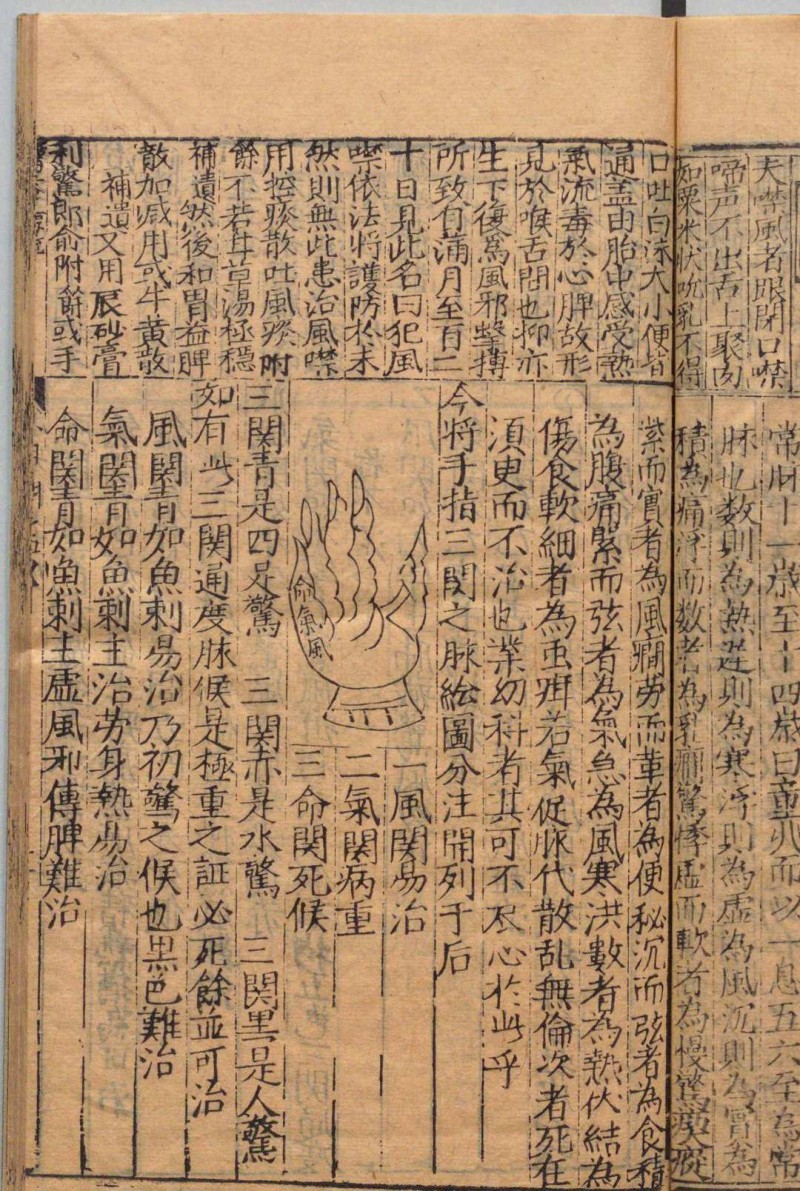 夫噤風者眼閉口噤
啼声不出舌上聚肉
如粟米狀吮乳不得
口吐白沫大小便皆
通盖由胎中感受熱
氣流毒於心脾故形
見於喉舌間也抑亦
生下復爲風邪擊搏
所致有滿月至百二
十日見此名曰犯風
噤依法將護防於未
然則無此患治風噤
用控痰散吐風痰附
餘不若甘草湯極穩
補遺然後和胃益脾
散加减用或牛黄散
補遺又用辰砂膏
利驚郎俞附餅或手
常脉十一歲至十四歲曰童丱而以一息五六至為常
脉也数則為熱遲則為寒浮則為虛為風沉則為胃為
積為痛浮而数者為乳癇驚悸虛而軟者為慢驚瘈瘲
紫而實者為風癇勞而華者為便秘沉而弦者為食積
為腹痛緊而弦者為氣急為風寒洪數者為熱伏結為
傷食軟細者為虫疳若氣促脉代散乱無倫次者死在
須臾而不治也業幼科者其可不尽心於此乎
今將手指三関之脉絵圖分注開列于后
命氣風
一風関易治
二氣関病重
三命関死候
三関青是四足驚 三関赤是水驚 三関黒是人驚
如有此三関通度脉候是極重之証必死餘並可治
風関青如魚剌易治乃初驚之候也黒色難治
氣関青如魚剌主治劳身熱易治
命関青如魚剌主虛風邪傳脾難治